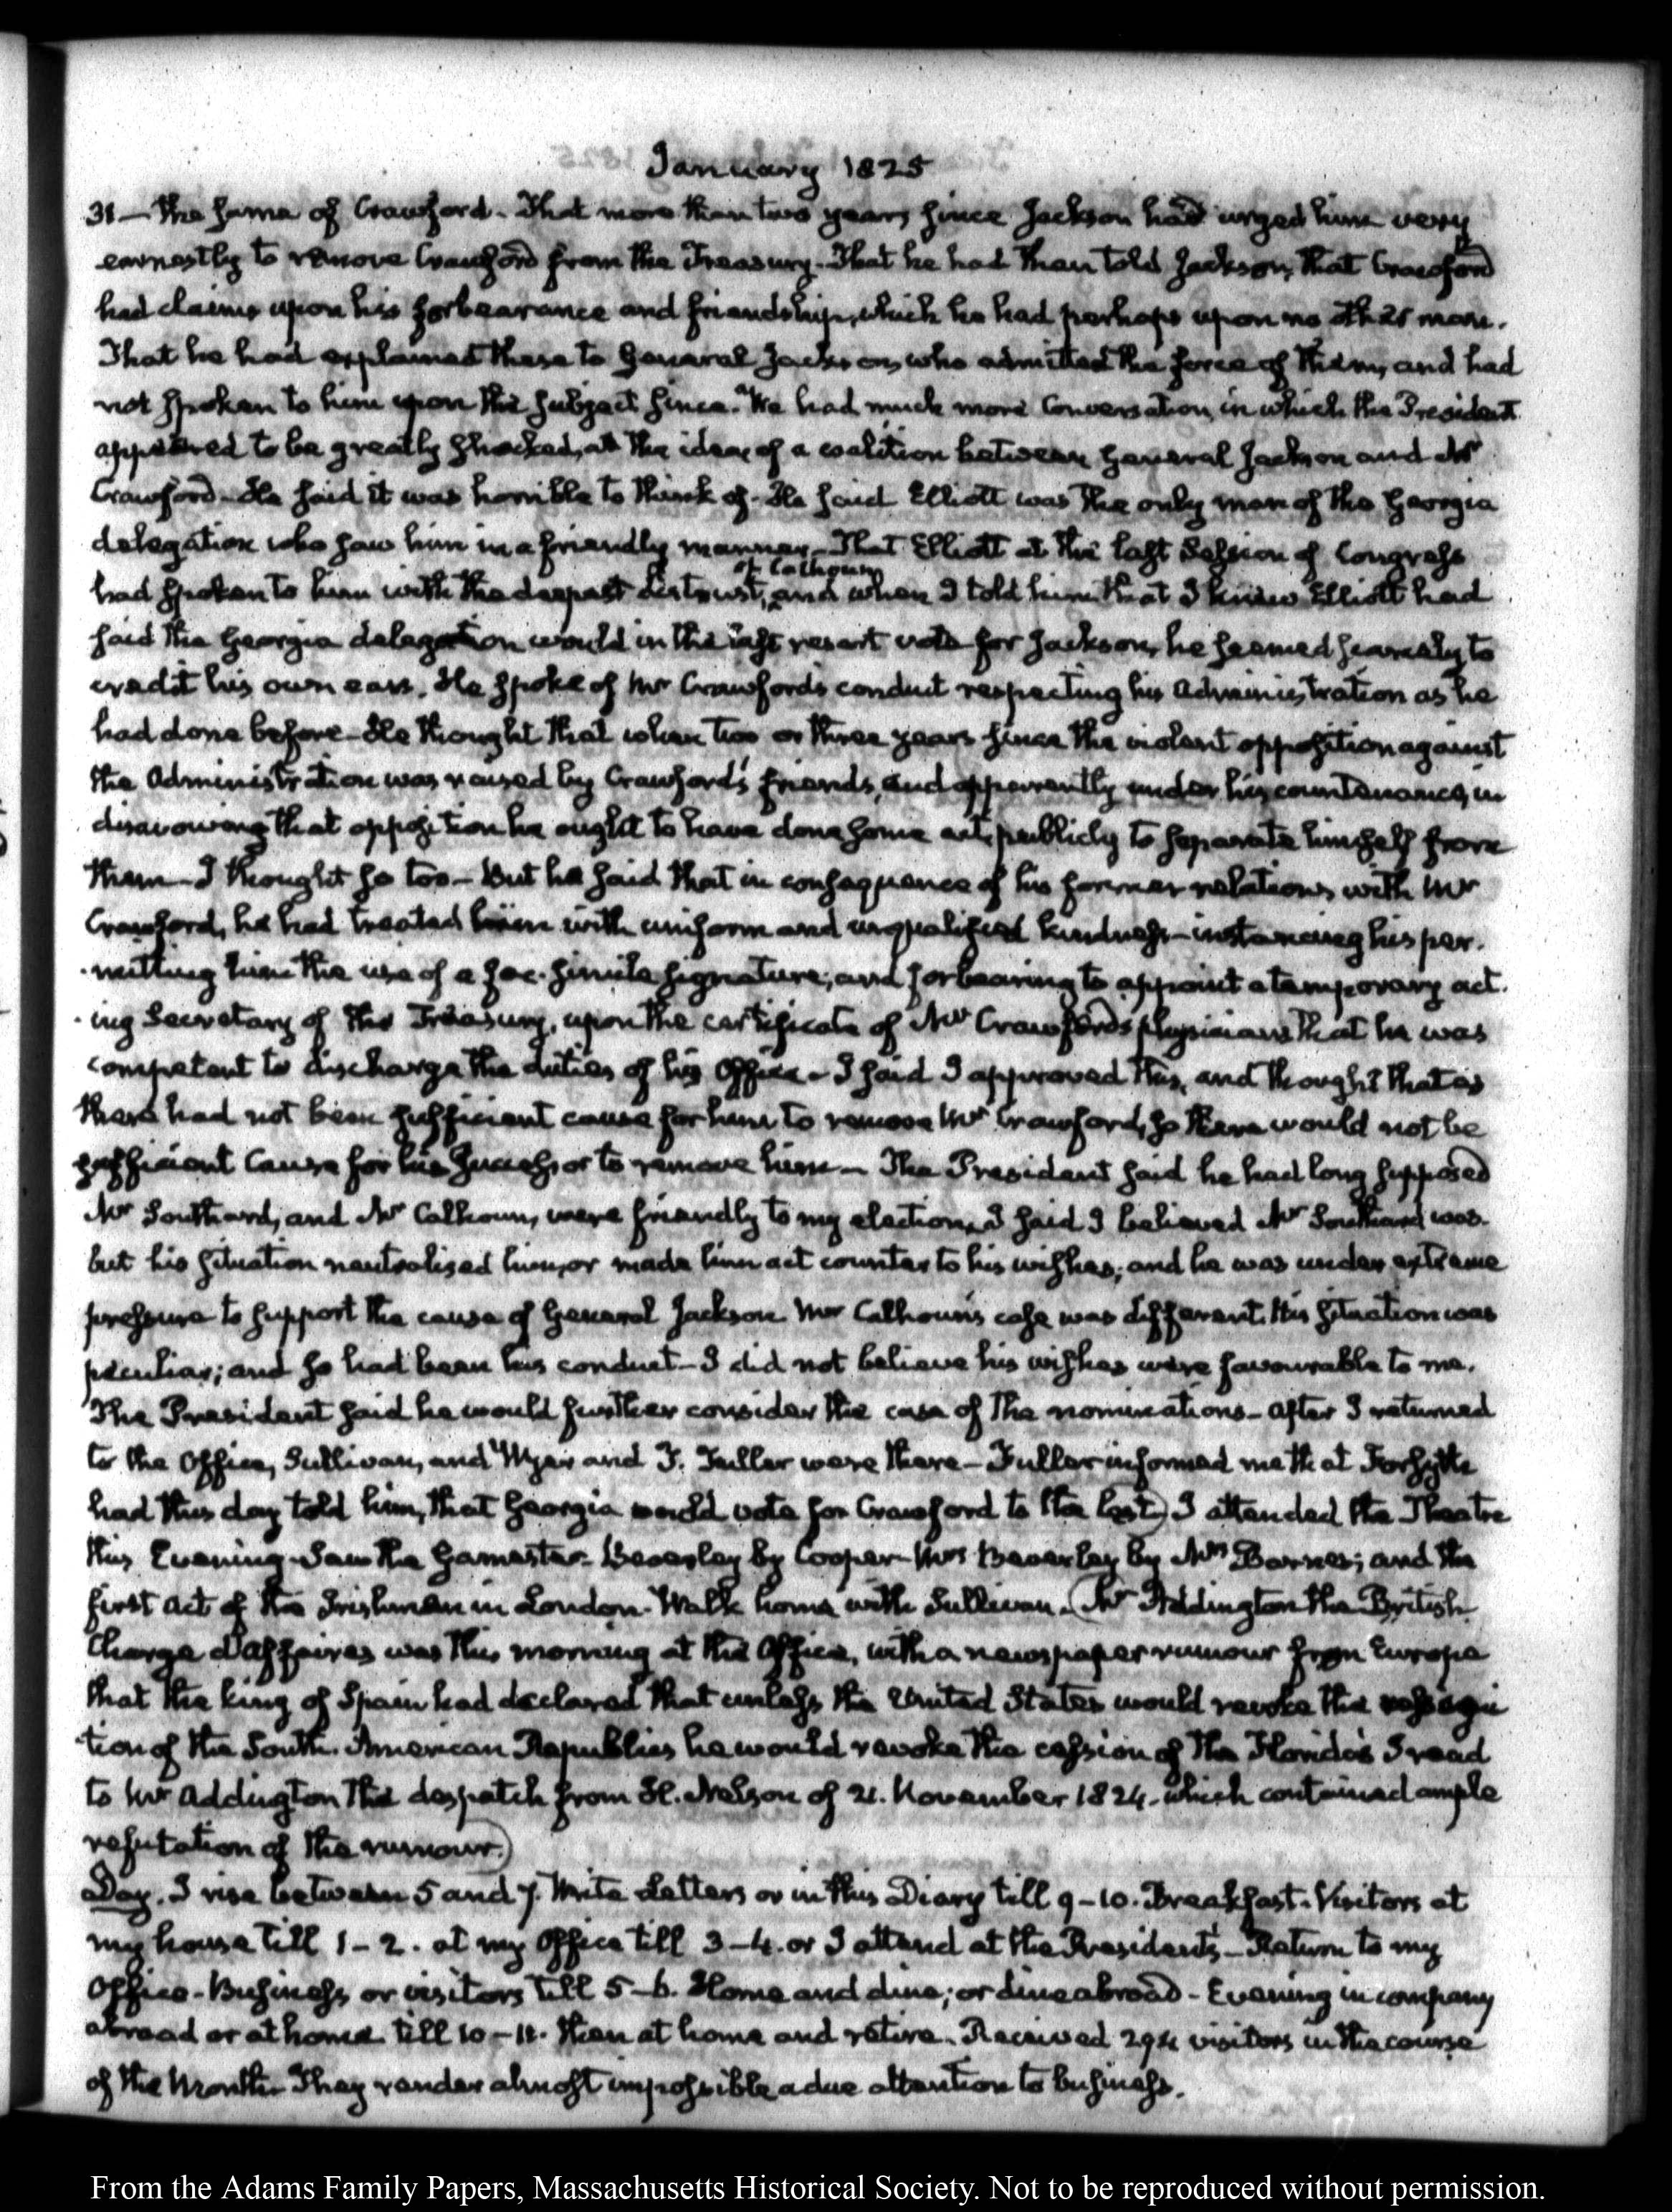 January 1825
31— the same of Crawford. That more than two years since Jackson had urged him very
earnestly to remove Crawford from the Treasury. That he had then told Jackson, that Crawford
had claims upon his forbearance and friendship, which he had perhaps upon no other man.
That he had explained these to General Jackson, who admitted the force of them, and had
not spoken to him upon the subject since. We had much more Conversation, in which the President
appeared to be greatly shocked, at the idea, of a coalition between General Jackson and Mr
Crawford— He said it was horrible to think of. He said Elliott was the only man of the Georgia
delegation who saw him in a friendly manner— That Elliott at the last Session of Congress
of Calhoun
had spoken to him with the deepest distrust, and when I told him that I knew Elliott had
said the Georgia delegation would in the last resort vote for Jackson, he seemed scarcely to
credit his own ears. He spoke of Mr Crawford's conduct respecting his Administration as he
had done before— He thought that when two or three years since the violent opposition against
the Administration was raised by Crawford's friends, and apparently under his countenance, in
disavowing that opposition he ought to have done some act, publicly to separate himself from
them— I thought so too— But he said that in consequence of his former relations with Mr
Crawford, he had treated him with uniform and unqualified kindness— instancing his per-
-mitting him the use of a fac-simile signature; and forbearing to appoint a temporary act-
-ing Secretary of the Treasury, upon the certificate of Mr Crawford's physicians that he was
competent to discharge the duties of his Office— I said I approved this, and thought that as
there had not been sufficient cause for him to remove Mr Crawford, so there would not be
sufficient Cause for his Successor to remove him— The President said he had long supposed
Mr Southard, and Mr Calhoun, were friendly to my election. I said I believed Mr Southard was.
but his situation neutralised him, or made him act counter to his wishes; and he was under extreme
pressure to support the cause of General Jackson. Mr Calhoun's case was different. His situation was
peculiar; and so had been his conduct— I did not believe his wishes were favourable to me.
The President said he would further consider the case of the nominations— After I returned
to the Office, Sullivan, and Wyer and T. Fuller were there— Fuller informed me that Forsyth
had this day told him, that Georgia would vote for Crawford to the last) I attended the Theatre
this Evening. Saw the Gamester— Beverley by Cooper— Mrs Beverley by Mrs Barnes; and the
first Act of the Irishman in London. Walk home with Sullivan. (Mr Addington the British
Charge d'Affaires was this morning at the Office, with a newspaper rumour from Europe
that the king of Spain had declared that unless the United States would revoke the recogni
tion of the South-American Republics he would revoke the cession of the Florida's I read
to Mr Addington the despatch from H. Nelson of 21. November 1824. which contained ample
refutation of the rumour.)
Day. I rise between 5 and 7. Write Letters or in this Diary till 9–10. Breakfast. Visitors at
my house till 1–2. at my Office till 3–4. or I attend at the President's— Return to my
Office— Business or visitors till 5–6. Home and dine; or dine abroad— Evening in company
abroad or at home till 10–11. then at home and retire. Received 294 visitors in the course
of the Month— They render almost impossible a due attention to business.
From the Adams Family Papers, Massachusetts Historical Society. Not to be reproduced without permission.